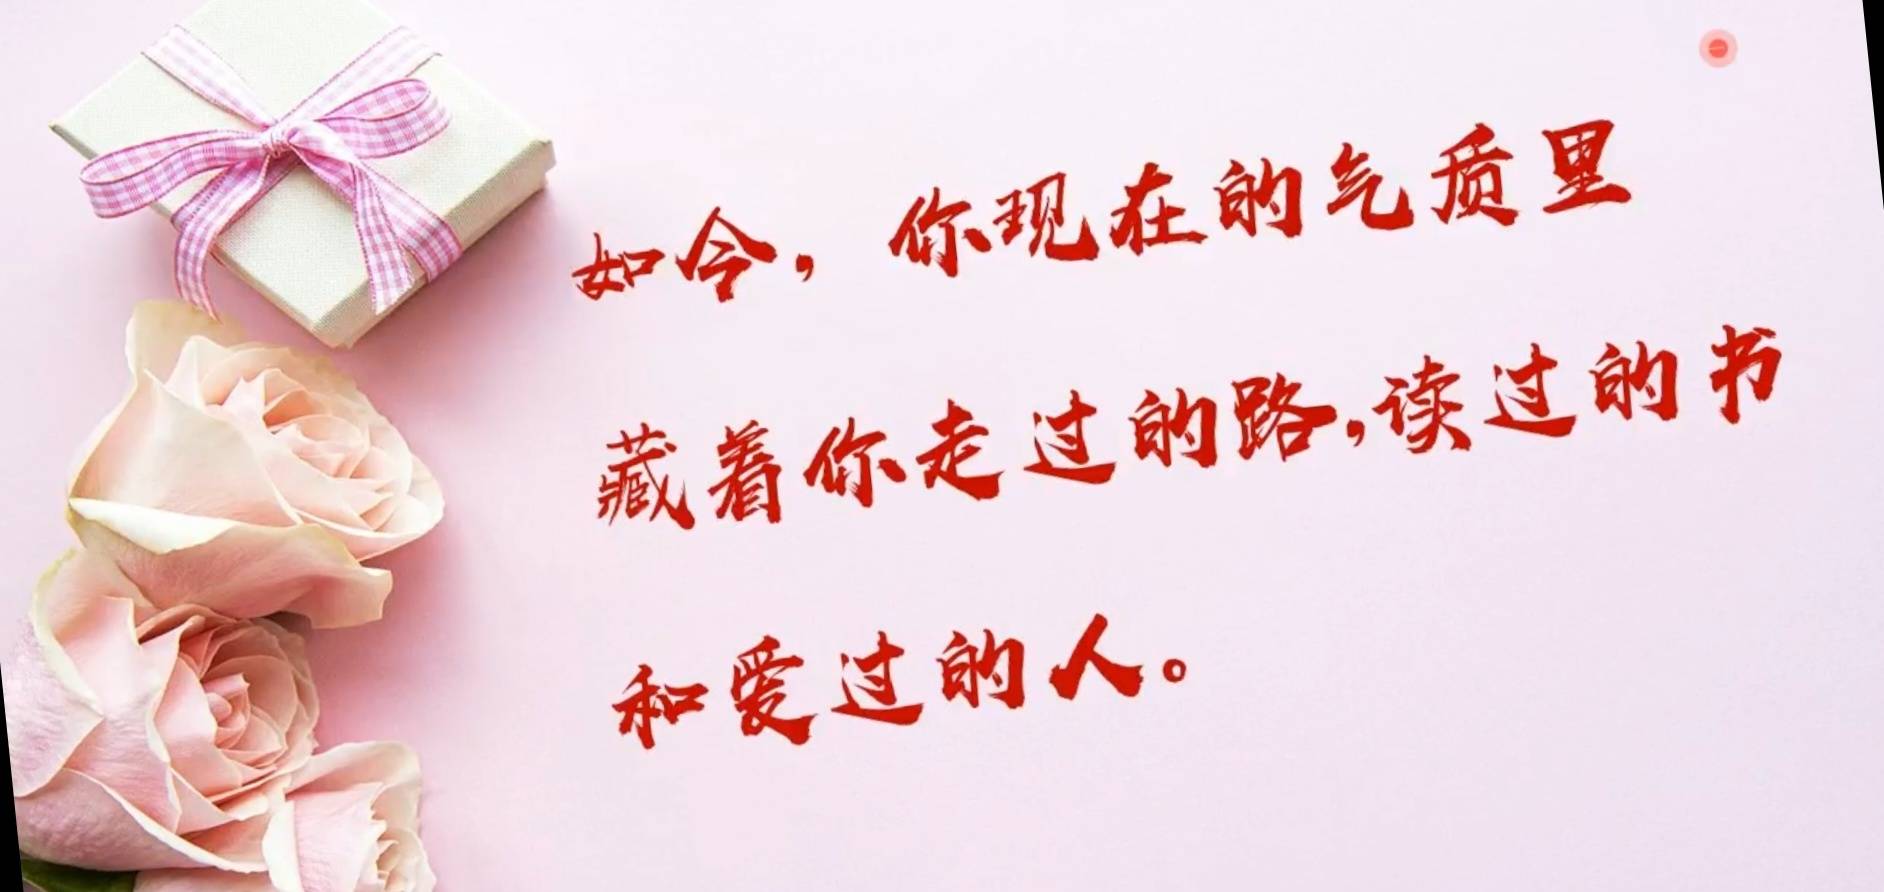 如今，你现在的气质里
藏着你走过的路,读过的书
和爱过的人。